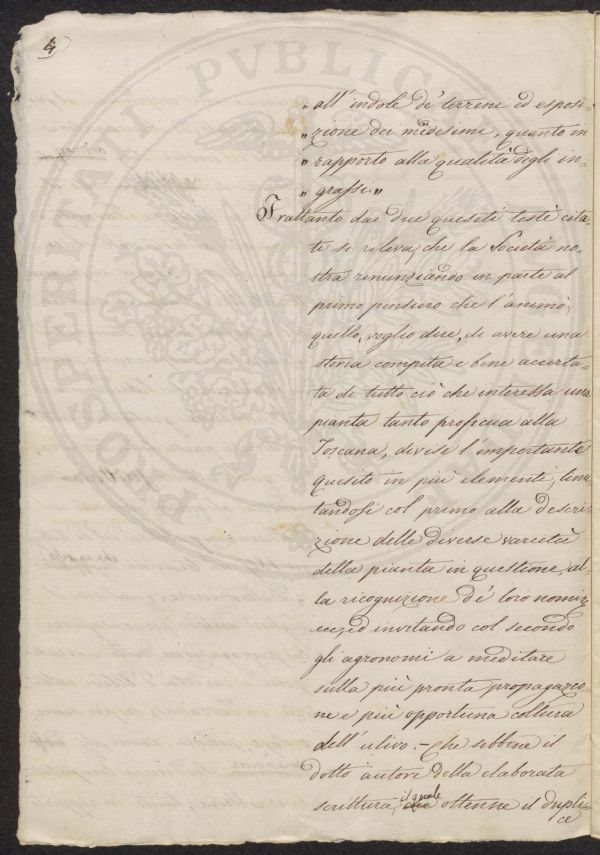 4
„ all' indole de' terreni ed esposi-
„ zione dei medesimi, quanto in
„ rapporto alla qualità degli in-
„ grassi „
Frattanto dai due quesiti testè cita-
ti si rileva, che la Società no-
stra rinunziando in parte al
primo pensiero che l'animò,
quello, voglio dire, di avere una
storia compita e bene accerta-
ta di tutto ciò che interessa una
pianta tanto proficua alla
Toscana, divise l'importante
quesito in più elementi, limi
tandosi col primo alla descri-
zione delle diverse varietà
della pianta in questione, al-
la ricognizione de' loro nomi,
ed invitando col secondo
gli agronomi a meditare
sulla più pronta propagazio
ne e più opportuna coltura
dell' ulivo. - Che sebbene il
dotto autore della elaborata
scrittura, il quale ottenne il dupli-
ce
PROSPERITATI PVBLICAE